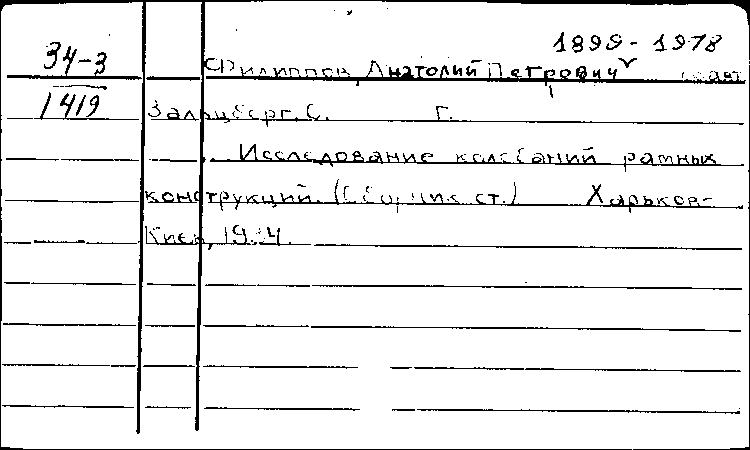 1899-1978
34-3
Филиппов, Анатолий Петрович
1419
Зальцберг, С. Г.
Исследование колебаний рамных
конструкций. (Сборник ст.) Харьков-
Киев,